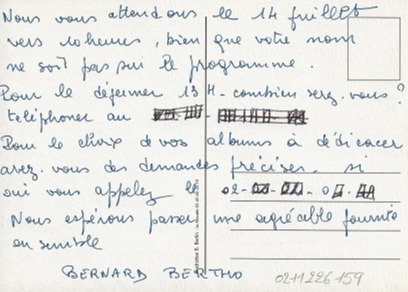 Nous vous attendons le 14 juillet
vers 10 heures, bien que votre nom
ne soit pas sur le programme.
Pour le déjeuner 13 H - combien serez vous ?
téléphoner au
Pour le choix de vos albums à dédicacer
avez-vous des demandes précises. si
oui vous appelez le 02- - - 0
Nous espérons passer une agréable journée
ensemble
BERNARD BERTHO
0211226159